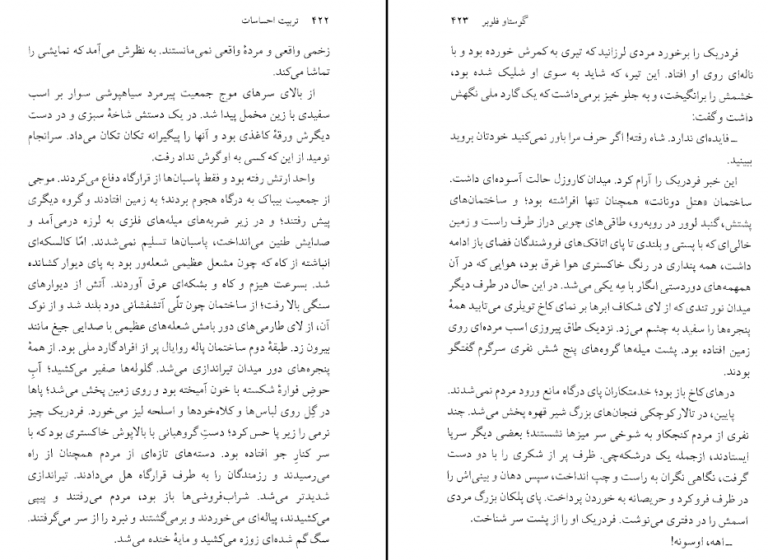 ۴۲۲ تربیت احساسات
زخمی واقعی و مردهٔ واقعی نمی‌مانستند. به نظرش می‌آمد که نمایشی را
تماشا می‌کند.
از بالای سرهای موج جمعیت پیرمرد سیاهپوشی سوار بر اسب
سفیدی با زین مخمل پیدا شد. در یک دستش شاخهٔ سبزی و در دست
دیگرش ورقهٔ کاغذی بود و آنها را پیگیرانه تکان تکان می‌داد. سرانجام
نومید از این که کسی به او گوش نداد رفت.
واحد ارتش رفته بود و فقط پاسبان‌ها از قرارگاه دفاع می‌کردند. موجی
از جمعیت بیباک به درگاه هجوم بردند؛ به زمین افتادند و گروه دیگری
پیش رفتند؛ و در زیر ضربه‌های میله‌های فلزی به لرزه درمی‌آمد و
صدایش طنین می‌انداخت، پاسبان‌ها تسلیم نمی‌شدند. امّا کالسکه‌ای
انباشته از کاه که چون مشعل عظیمی شعله‌ور بود به پای دیوار کشانده
شد. بسرعت هیزم و کاه و بشکه‌ای عرق آوردند. آتش از دیوارهای
سنگی بالا رفت؛ از ساختمان چون تلّی آتشفشانی دود بلند شد و از نوک
آن، از لای طارمی‌های دور بامش شعله‌های عظیمی با صدایی جیغ مانند
بیرون زد. طبقهٔ دوم ساختمان پاله روایال پر از افراد گارد ملی بود. از همهٔ
پنجره‌های دور میدان تیراندازی می‌شد. گلوله‌ها صفیر می‌کشید؛ آبِ
حوضِ فوارهٔ شکسته با خون آمیخته بود و روی زمین پخش می‌شد؛ پاها
در گِل روی لباس‌ها و کلاه‌خودها و اسلحه لیز می‌خورد. فردریک چیز
نرمی را زیر پا حس کرد؛ دستِ گروهبانی با بالاپوش خاکستری بود که با
سر کنار جو افتاده بود. دسته‌های تازه‌ای از مردم همچنان از راه
می‌رسیدند و رزمندگان را به طرف قرارگاه هل می‌دادند. تیراندازی
شدیدتر می‌شد. شراب‌فروشی‌ها باز بود، مردم می‌رفتند و پیپی
می‌کشیدند، پیاله‌ای می‌خوردند و برمی‌گشتند و نبرد را از سر می‌گرفتند.
سگ گم شده‌ای زوزه می‌کشید و مایهٔ خنده می‌شد.
گوستاو فلوبر ۴۲۳
فردریک را برخورد مردی لرزانید که تیری به کمرش خورده بود و با
ناله‌ای روی او افتاد. این تیر، که شاید به سوی او شلیک شده بود،
خشمش را برانگیخت، و به جلو خیز برمی‌داشت که یک گارد ملی نگهش
داشت و گفت:
ــ فایده‌ای ندارد. شاه رفته! اگر حرف مرا باور نمی‌کنید خودتان بروید
ببینید.
این خبر فردریک را آرام کرد. میدان کاروزل حالت آسوده‌ای داشت.
ساختمان «هتل دونانت» همچنان تنها افراشته بود؛ و ساختمان‌های
پشتش، گنبد لوور در روبه‌رو، طاقی‌های چوبی دراز طرف راست و زمین
خالی‌ای که با پستی و بلندی تا پای اتاقک‌های فروشندگان فضای باز ادامه
داشت، همه پنداری در رنگ خاکستری هوا غرق بود، هوایی که در آن
همهمه‌های دوردستی انگار با مِه یکی می‌شد. در این حال در طرف دیگر
میدان نور تندی که از لای شکاف ابرها بر نمای کاخ تویلری می‌تابید همهٔ
پنجره‌ها را سفید به چشم می‌زد. نزدیک طاق پیروزی اسب مرده‌ای روی
زمین افتاده بود. پشت میله‌ها گروه‌های پنج شش نفری سرگرم گفتگو
بودند.
درهای کاخ باز بود؛ خدمتکاران پای درگاه مانع ورود مردم نمی‌شدند.
پایین، در تالار کوچکی فنجان‌های بزرگ شیر قهوه پخش می‌شد. چند
نفری از مردم کنجکاو به شوخی سر میزها نشستند؛ بعضی دیگر سرپا
ایستادند، ازجمله یک درشکه‌چی. ظرف پر از شکری را با دو دست
گرفت، نگاهی نگران به راست و چپ انداخت، سپس دهان و بینی‌اش را
در ظرف فرو کرد و حریصانه به خوردن پرداخت. پای پلکان بزرگ مردی
اسمش را در دفتری می‌نوشت. فردریک او را از پشت سر شناخت.
ــ اهه، اوسونه!